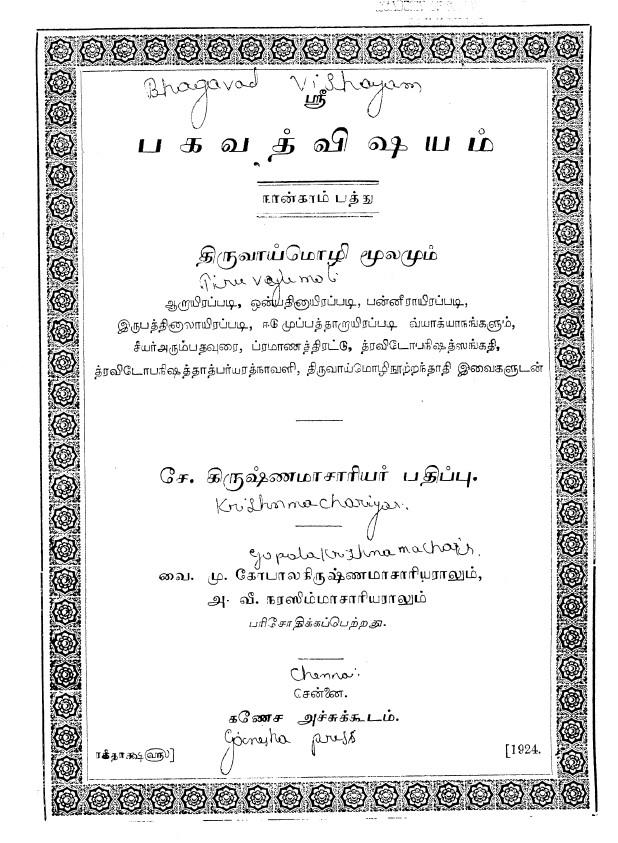 Bhagavad Vishayam
ஸ்ரீ
பகவத்விஷயம்
நான்காம் பத்து
திருவாய்மொழி மூலமும்
ஆறாயிரப்படி, ஒன்பதினாயிரப்படி, பன்னீராயிரப்படி,
இருபத்தினாலாயிரப்படி, ஈடு முப்பத்தாறாயிரப்படி வ்யாக்யாநங்களும்,
சீயர் அரும்பதவுரை, ப்ரமாணத்திரட்டு, த்ரவிடோபநிஷத்ஸங்கதி,
த்ரவிடோபநிஷத்தாத்பர்யரத்நாவளி, திருவாய்மொழிநூற்றந்தாதி இவைகளுடன்
சே. கிருஷ்ணமாசாரியர் பதிப்பு.
Krishnmachariyar.
Gopalakrishnamachari's.
வை. மு. கோபாலகிருஷ்ணமாசாரியராலும்,
அ. வீ. நரஸிம்மாசாரியராலும்
பரிசோதிக்கப்பெற்றது.
Chennai
சென்னை.
கணேச அச்சுக்கூடம்.
Ganesha press
[1924.